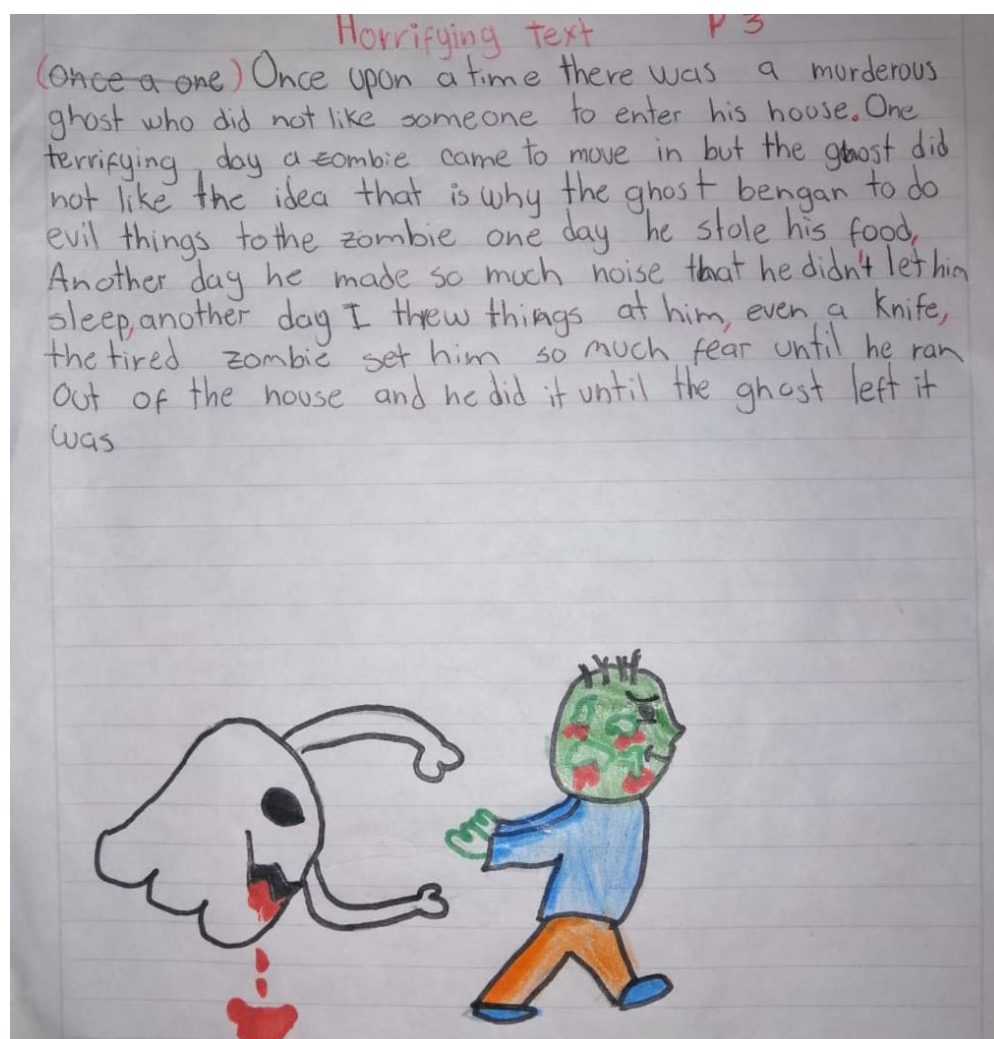 Horrifying text P 3
(Once a one) Once upon a time there was a murderous
ghost who did not like someone to enter his hoose. One
terrifying day a zombie came to move in but the ghost did
not like the idea that is why the ghost bengan to do
evil things to the zombie one day he stole his food,
Another day he made so much noise that he didn't let him
sleep, another day I threw things at him, even a knife,
the tired zombie set him so much fear until he ran
Out of the house and he did it until the ghost left it
was